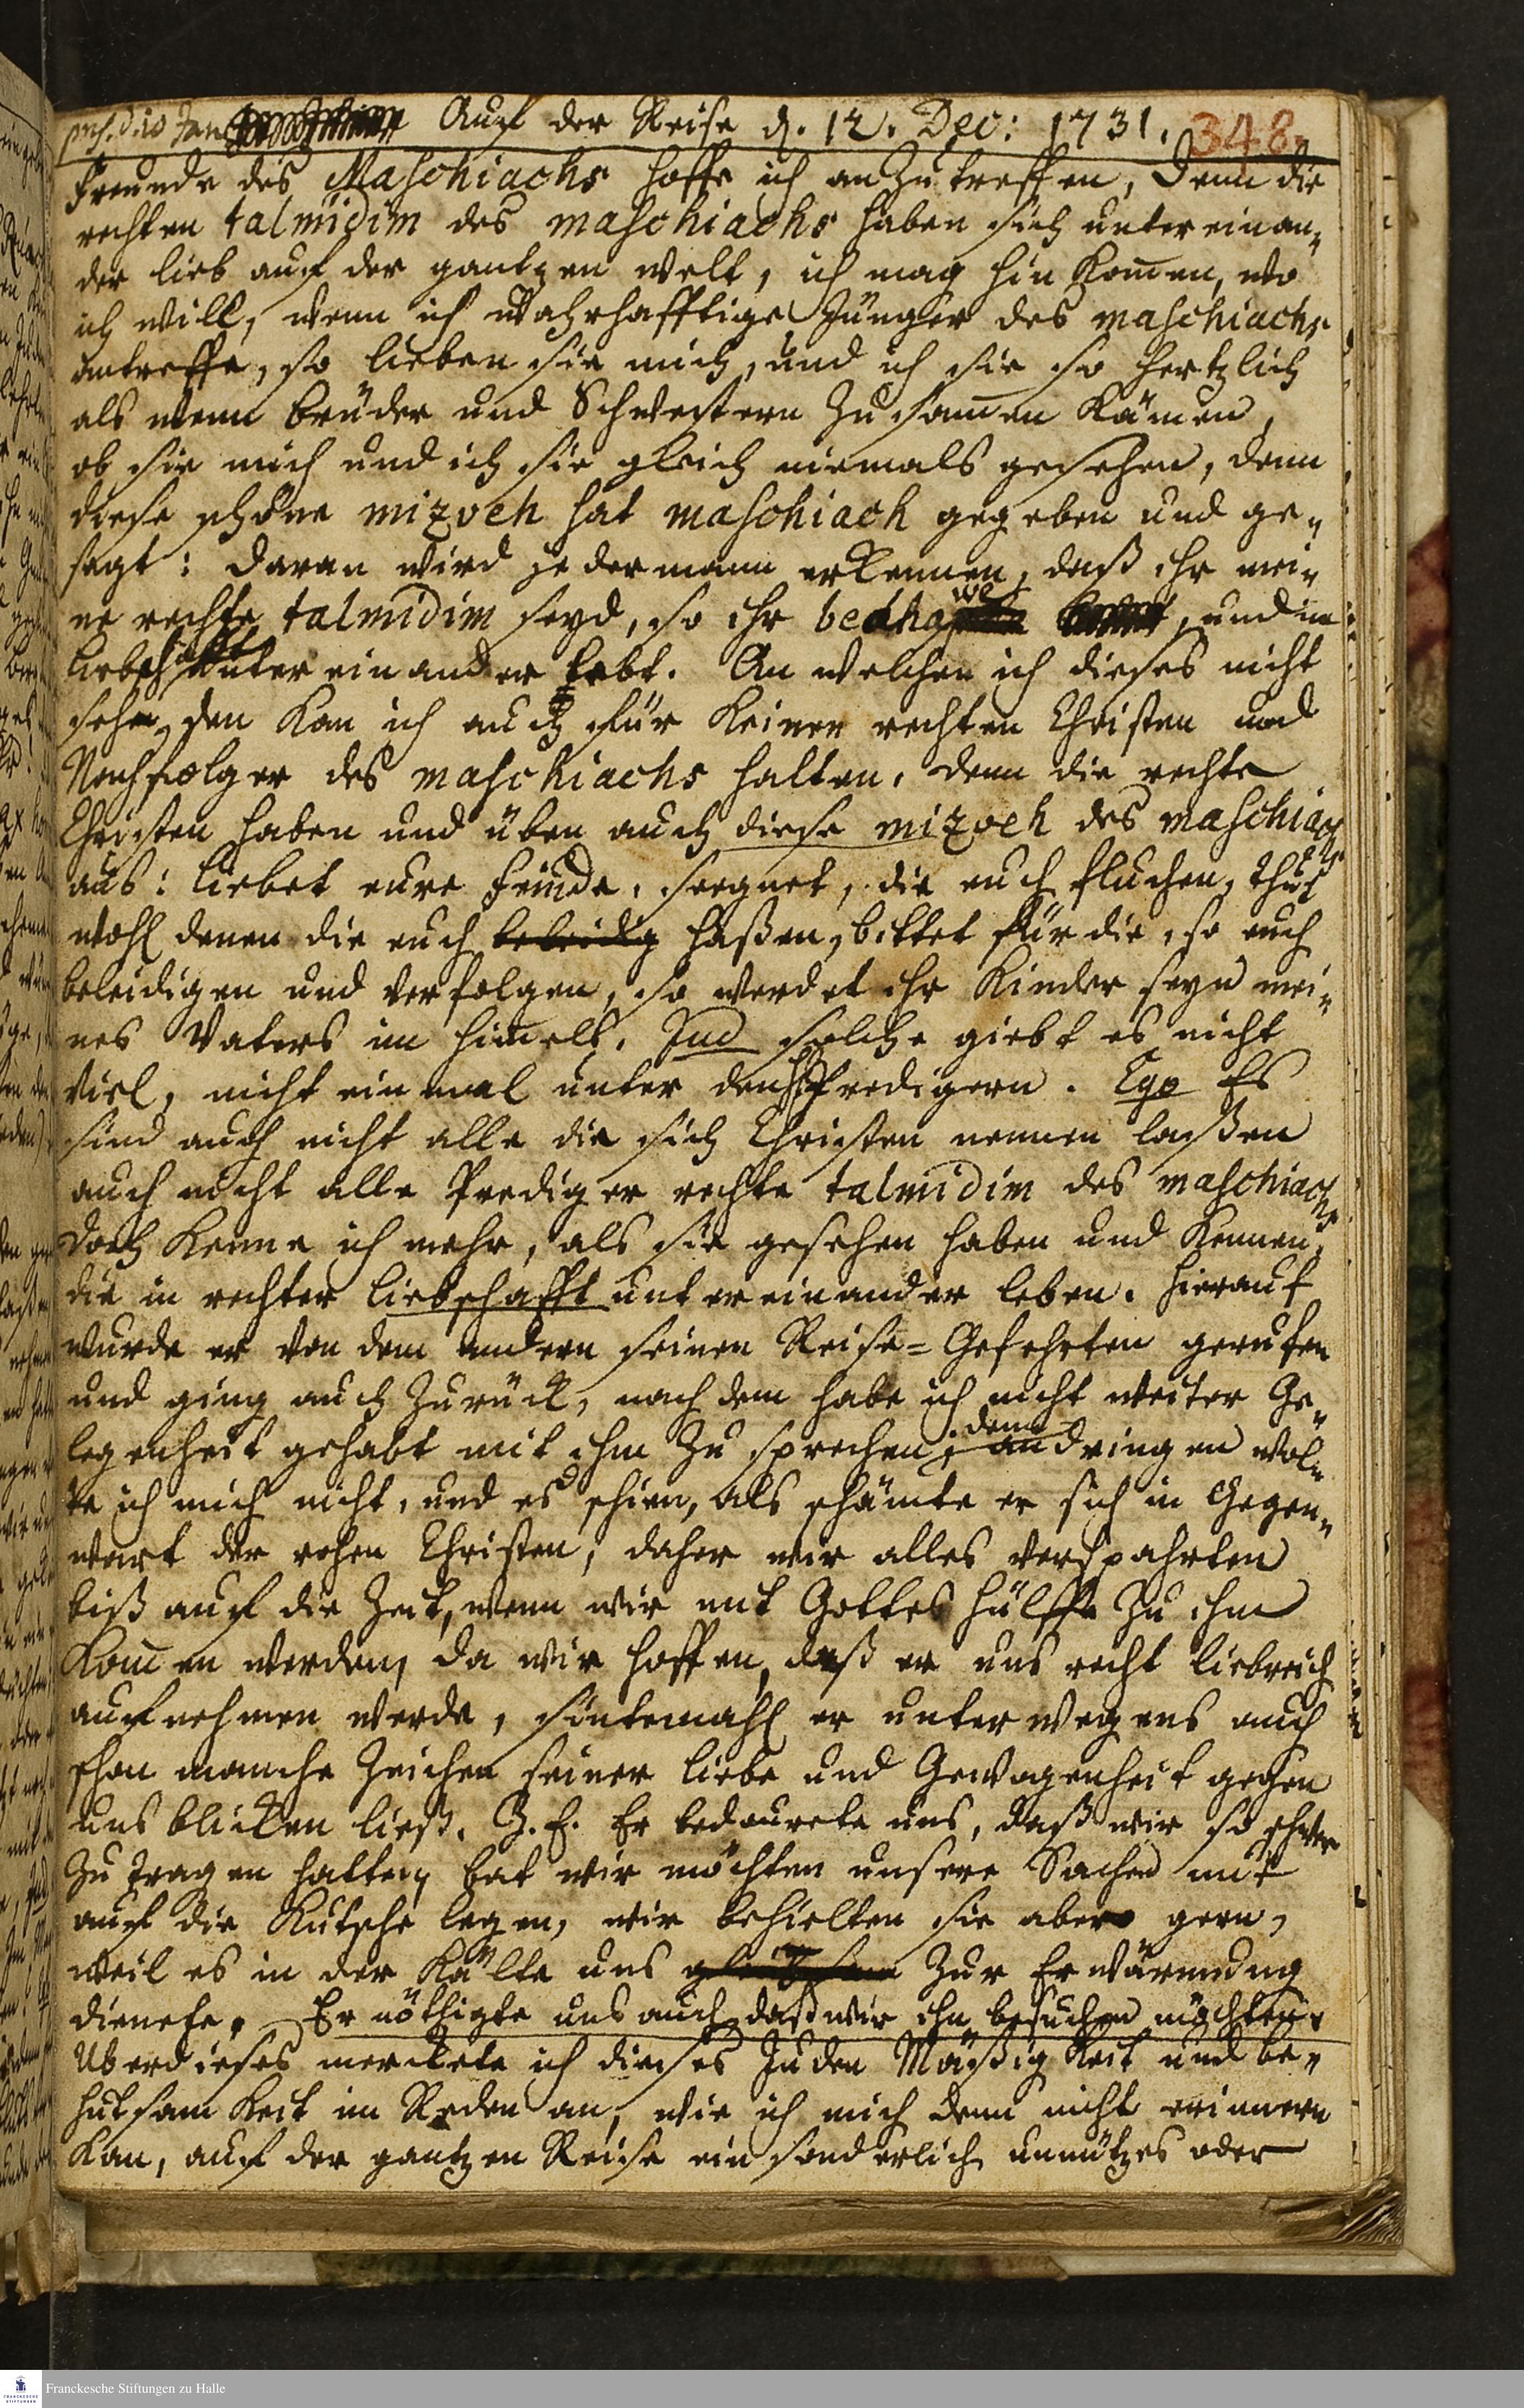 Auf der Reise d. 12. Dec: 1731. 348.
Freunde des Maschiachs hoffe ich anzutreffen, Denn die
rechten talmidim des maschiachs haben sich unter einan-
der lieb auf der gantzen welt, ich mag hin kom̄en, wo
ich will, wenn ich wahrhafftige Jünger des maschiachs
antreffe, so lieben sie mich, und ich sie so hertzlich
als wenn brüder und Schwestern zusam̄en kämen,
ob sie mich und ich sie gleich niemals gesehen, denn
diese schöne mizveh hat maschiach gegeben und ge-
sagt: daran wird jedermann erkennen, daß ihr mei-
ne rechte talmidim seyd, so ihr beahawe, und in
liebschafft unter einander lebt. An welchen ich dieses nicht
sehe, den kan ich auch für keinen rechten Christen und
Nachfolger des maschiachs halten, denn die rechte
Christen haben und üben auch diese mizveh des maschiachs
aus: liebet eure feinde, seegnet, die euch fluchen, thut
wohl denen die euch beleidig haßen, bittet für die, so euch
beleidigen und verfolgen, so werdet ihr Kinder seyn mei-
nes Vaters im him̄els. Jud solche giebt es nicht
viel, nicht ein mal unter den Predigern. Ego Es
sind auch nicht alle die sich Christen nennen laßen
auch nicht alle Prediger rechte talmidim des maschiachs
doch kenne ich mehr, als sie gesehen haben und kennen,
die in rechter liebschafft unter einander leben. Hierauf
wurde er von dem andern seinen Reise=Gefehrten gerufen
und ging auch zurück, nach dem habe ich nicht weiter Ge-
legenheit gehabt mit ihm zu sprechen, denn andringen wol-
te ich mich nicht, und es schien, als schämte er sich in Gegen-
wart der rohen Christen, daher wir alles verspahrten
biß auf die Zeit, wenn wir mit Gottes hülffe zu ihm
kom̄en werden, da wir hoffen, daß er uns recht liebreich
aufnehmen werde, sintemahl er unterwegens auch
schon manche Zeichen seiner liebe und Gewogenheit gegen
uns blicken ließ. Z. E. Er bedaurete uns, daß wir so schwer
zu tragen hatten, bat wir möchten unsere Sachen mit
auf die Kutsche legen, wir behielten sie aber gern,
weil es in der Kälte uns gleichsam zur Erwärmung
dienete. Er nöthigte uns auch, daß wir ihn besuchen möchten.
Uberdieses merckete ich dieses Juden Mäßigkeit und be-
hutsamkeit im Reden an, wie ich mich denn nicht erinnern
kan, auf der gantzen Reise ein sonderlich unnützes oder
Franckesche Stiftungen zu Halle